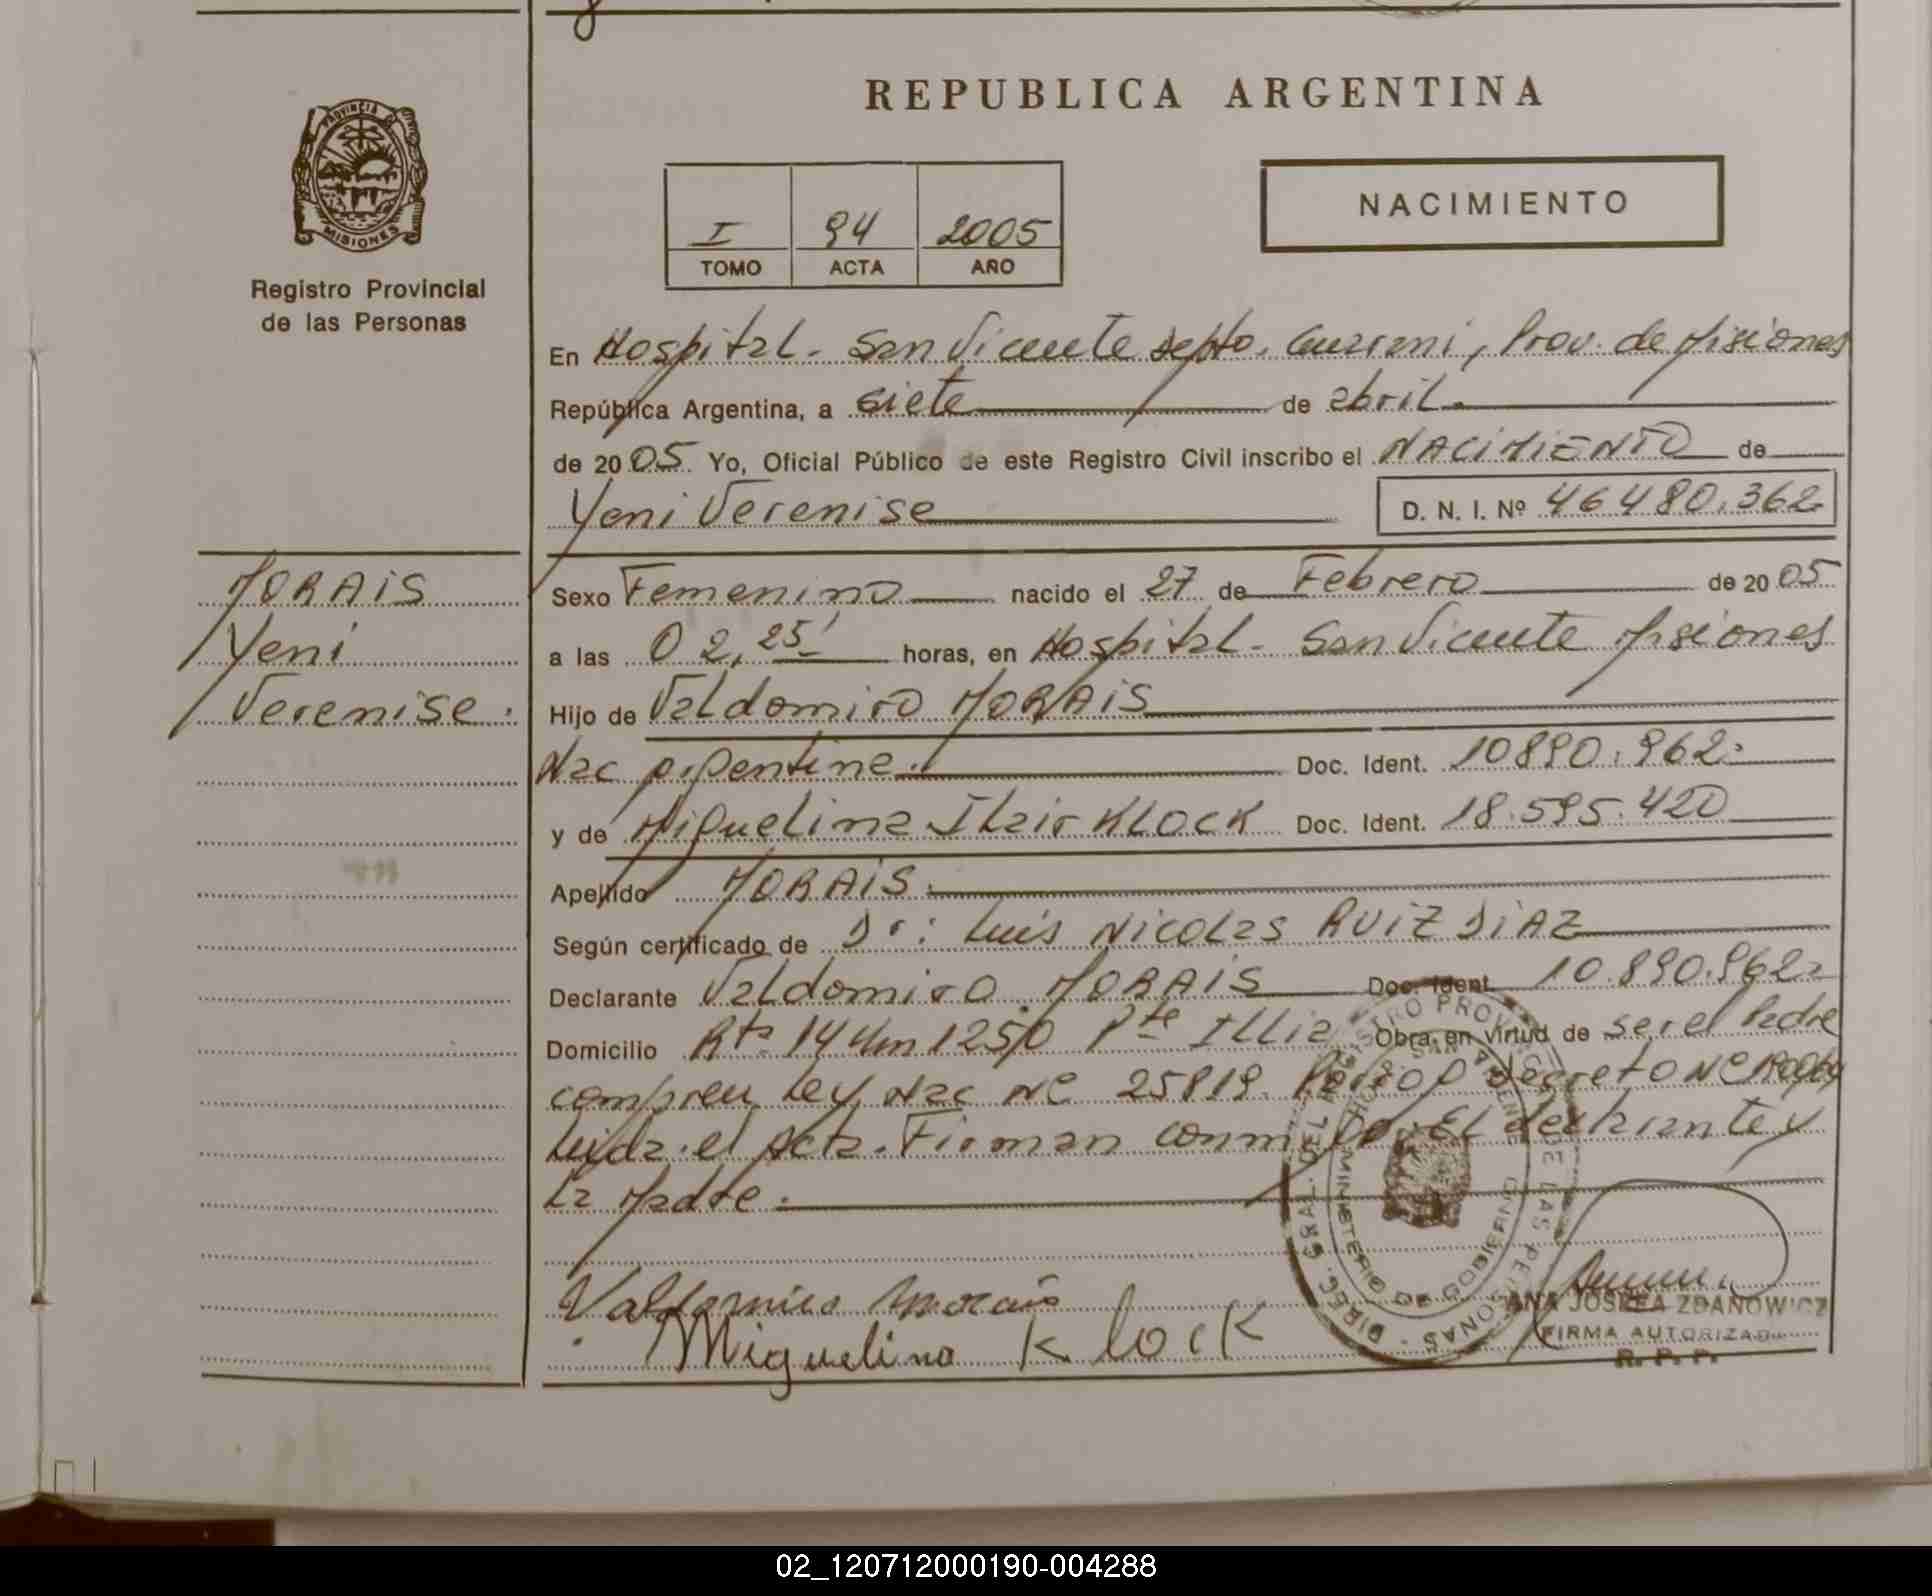 REPUBLICA ARGENTINA
PROVINCIA DE
MISIONES
Registro Provincial
de las Personas
I 94 2005
TOMO ACTA AÑO
NACIMIENTO
En Hospital - San Vicente Depto. Guarani, Prov. de Misiones
República Argentina, a siete de abril.
de 2005. Yo, Oficial Público de este Registro Civil inscribo el NACIMIENTO de
Yeni Verenise D. N. I. Nº 46480.362
MORAIS
Yeni
Verenise.
Sexo Femenino nacido el 27 de Febrero de 2005
a las 02,25' horas, en Hospital - San Vicente Misiones
Hijo de Valdomiro MORAIS
Nac argentina. Doc. Ident. 10890.962.
y de Miguelina Ilair KLOCK Doc. Ident. 18.595.420
Apellido MORAIS.
Según certificado de Dr: Luis Nicolas RUIZ DIAZ
Declarante Valdomiro MORAIS Doc. Ident. 10.890.962.
Domicilio Rta 14 Km 1250 Pte Illia Obra en virtud de ser el Padre
Ley Nac Nº 25819. Decreto Nº
Leida el Acta. Firman conmigo. El declarante y
La Madre.
Valdomiro Morais
Miguelina Klock
DIREC. GRAL. DEL REGISTRO PROVINCIAL DE LAS PERSONAS
MINISTERIO DE GOBIERNO
ANA JOSEFA ZDANOWICZ
FIRMA AUTORIZADA
R. P. P.
02_120712000190-004288